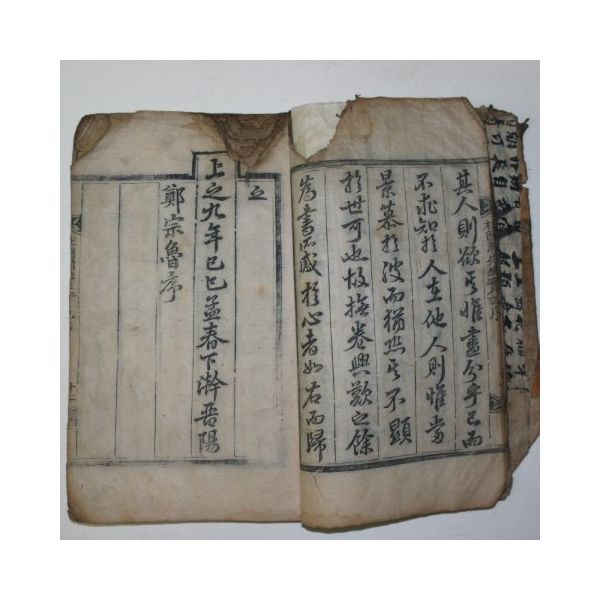 其人則欲其惟盡分乎己而
不求知於人在他人則惟當
景慕於彼而猶恐其不顯
於世可也故撫卷興歎之餘
為書所感於心者如右而歸
之
上之九年己巳孟春下澣晋陽
鄭宗魯序